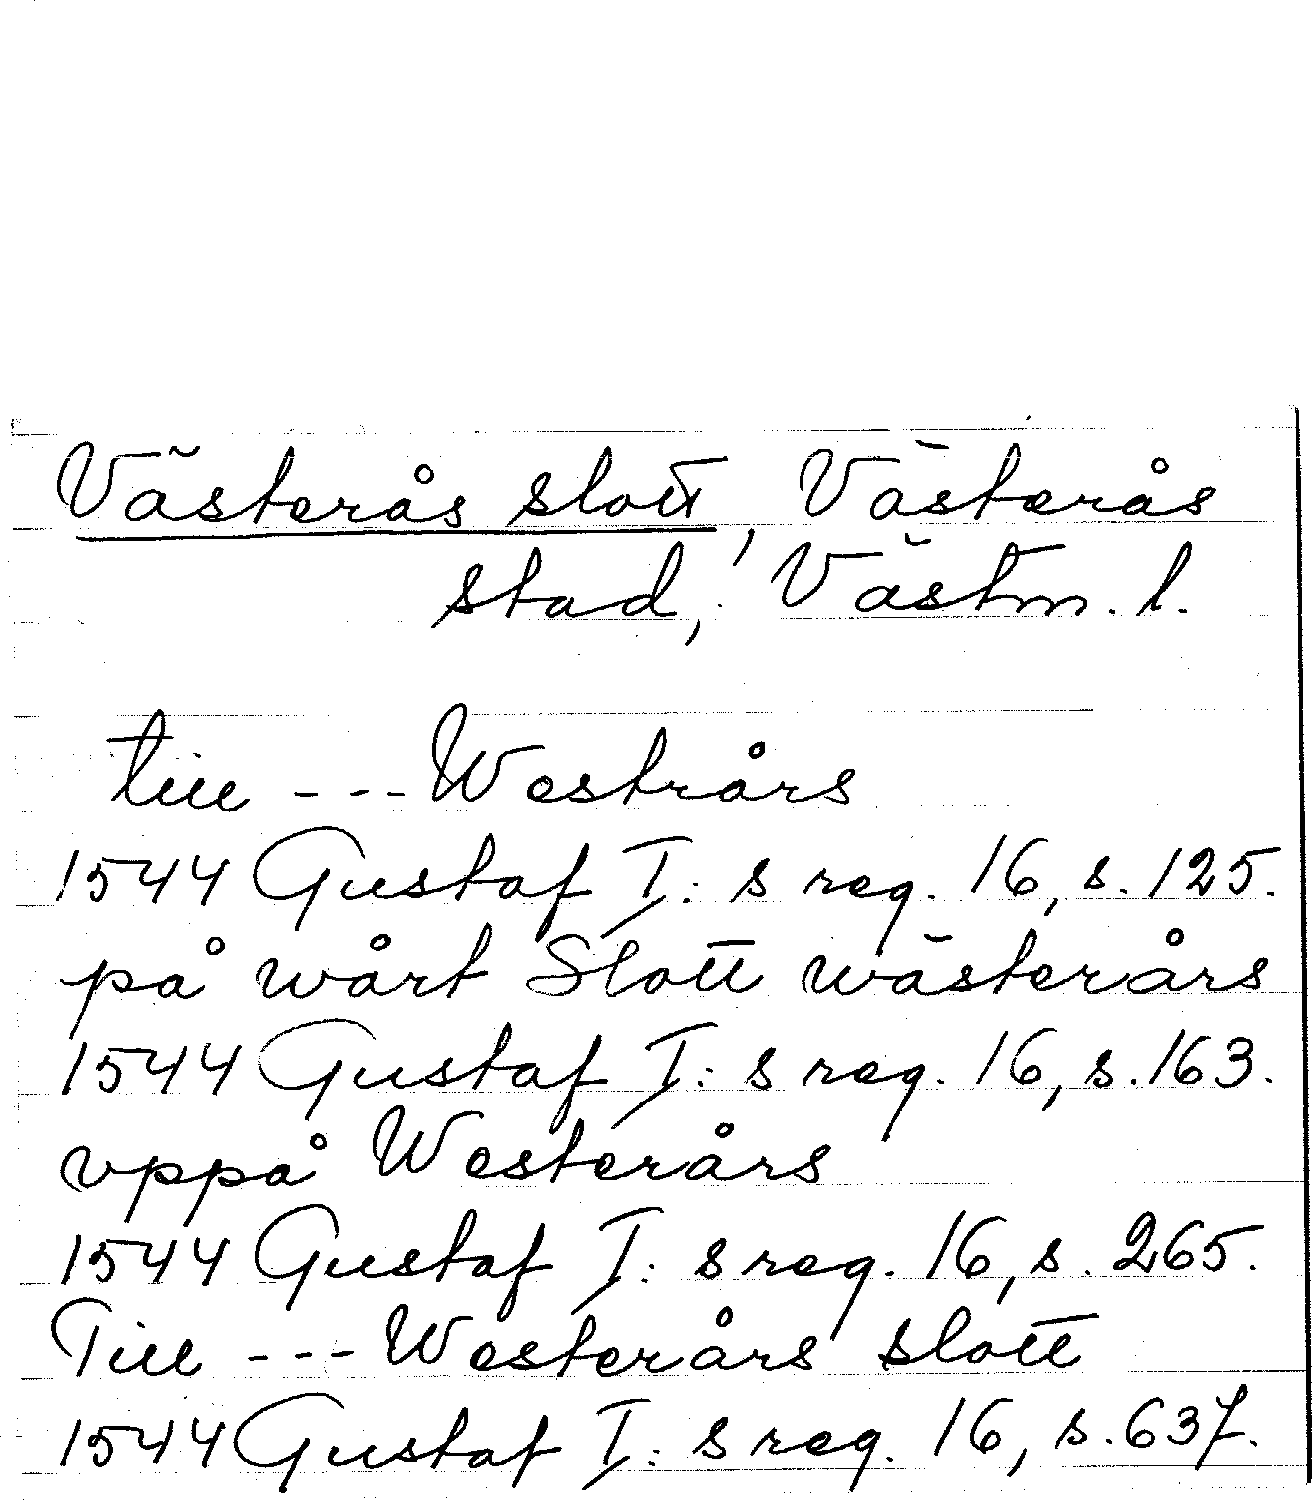 Västerås slott, Västerås
stad, Västm. l.
till --- Westrårs
1544 Gustaf I: s reg. 16, s. 125.
på wårt Slott wästerårs
1544 Gustaf I: s reg. 16, s. 163.
vppå Westerårs
1544 Gustaf I: s reg. 16, s. 265.
Till --- Westerårs slott
1544 Gustaf I: s reg. 16, s. 637.